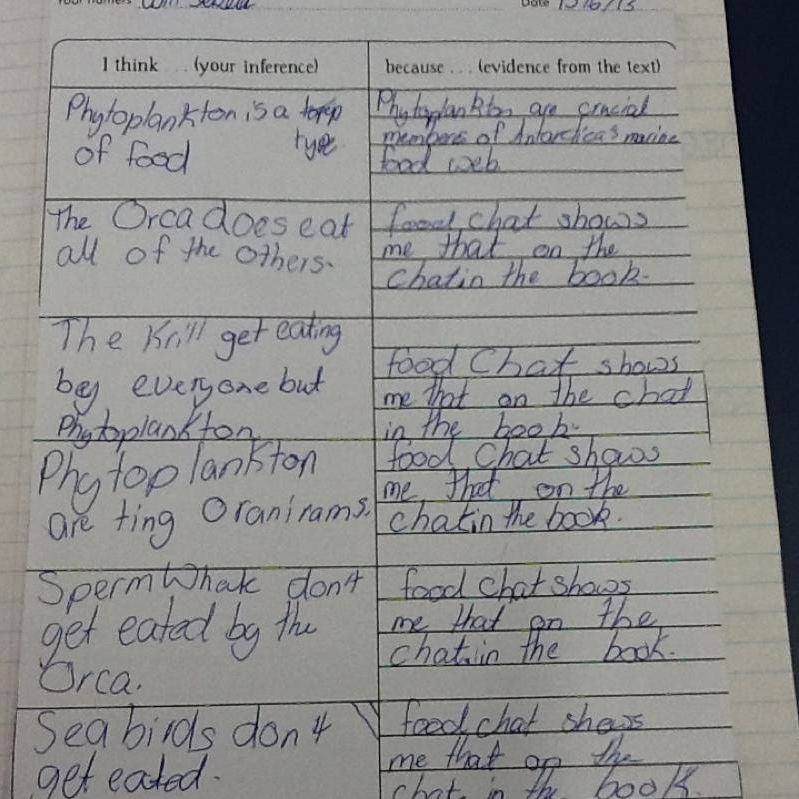 Date 15/6/13
I think ... (your inference)
because ... (evidence from the text)
Phytoplankton is a
type
of food
Phytoplankton are crucial
members of Antarctica's marine
food web
The Orca does eat
all of the others.
food chat shows
me that on the
chat in the book.
The Krill get eating
bey everyone but
Phytoplankton
food Chat shows
me that on the chat
in the book.
Phytoplankton
are ting Oranirams.
food Chat shows
me that on the
chat in the book.
Sperm Whale don't
get eated by the
Orca.
food chat shows
me that on the
chat in the book.
Sea birds don't
get eated.
food chat shows
me that on the
chat in the book.